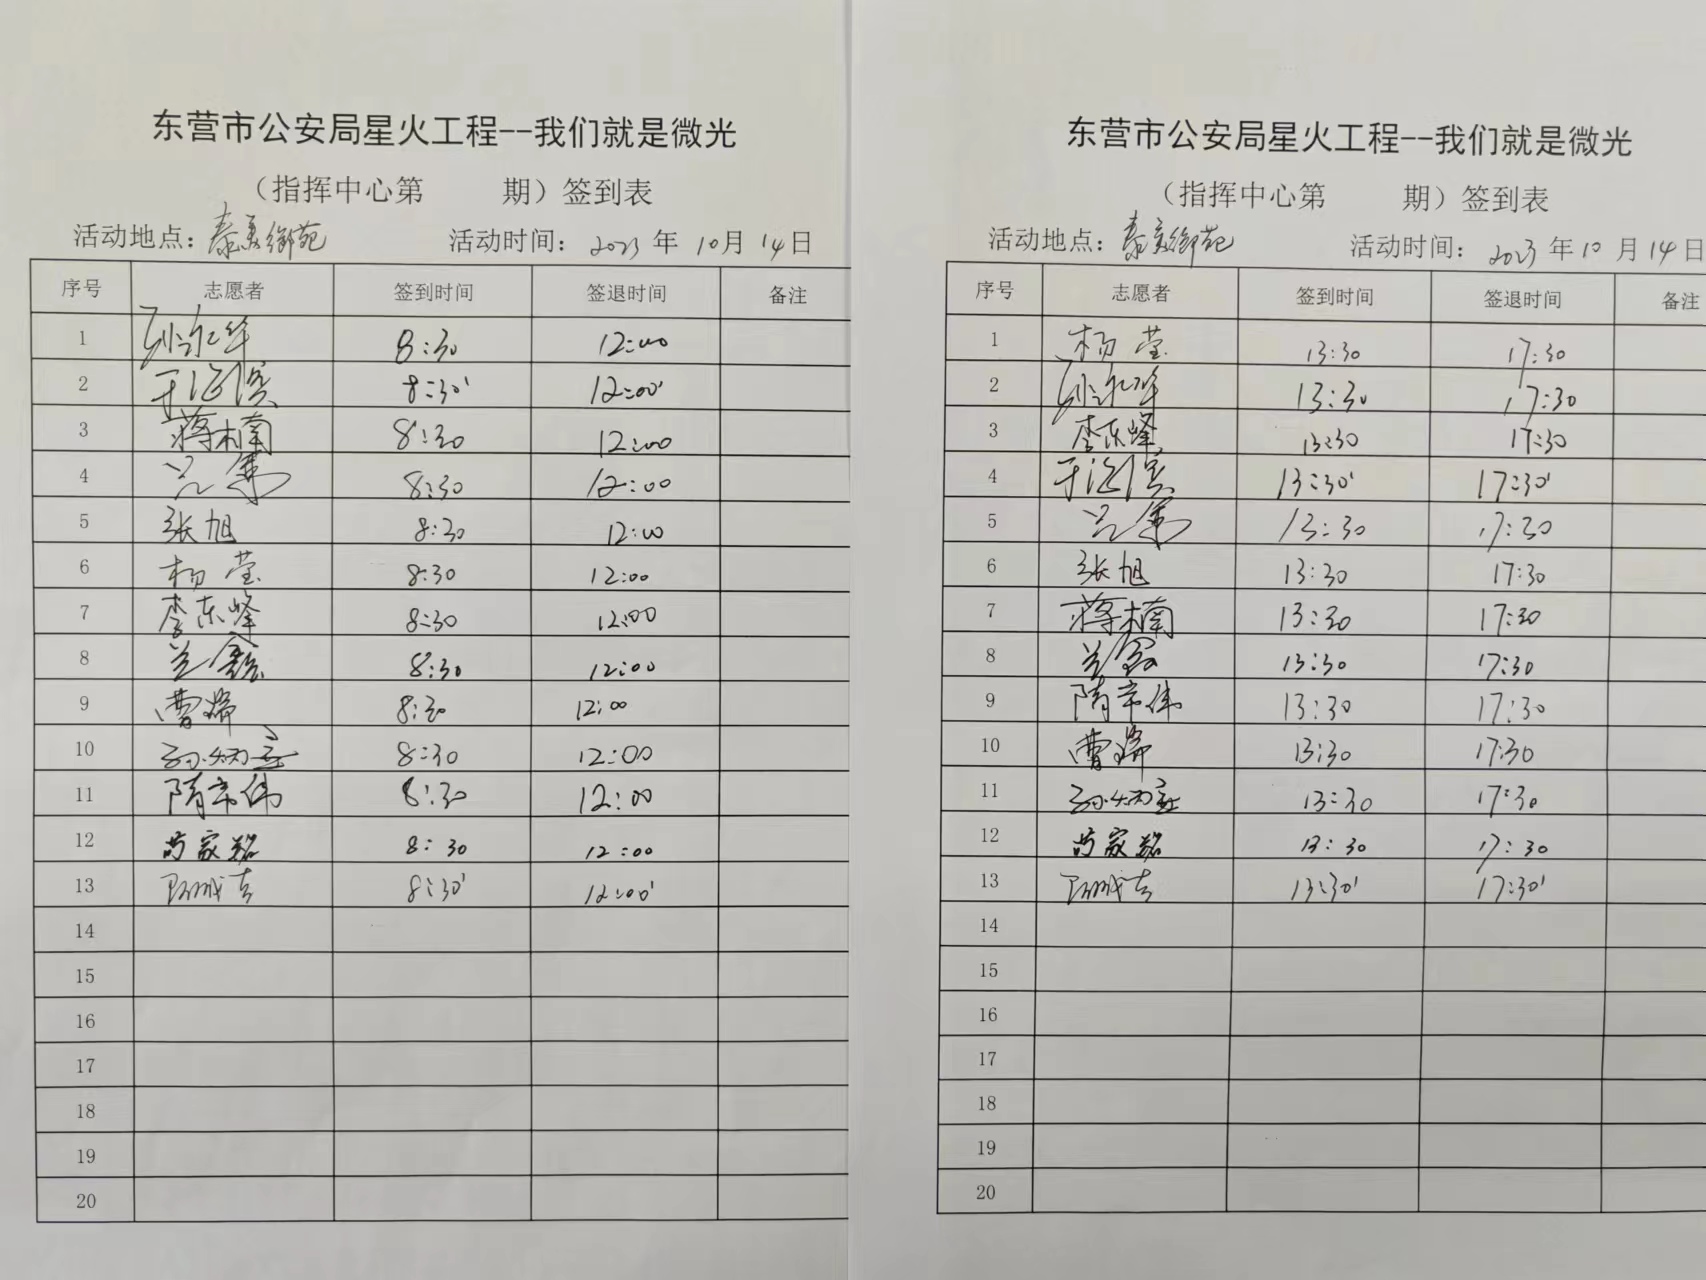 东营市公安局星火工程--我们就是微光
（指挥中心第 期）签到表
活动地点：泰美御苑 活动时间：2023年10月14日
序号 志愿者 签到时间 签退时间 备注
1 8:30 12:00
2 于海滨 8:30' 12:00'
3 蒋楠 8:30 12:00
4 8:30 12:00
5 张旭 8:30 12:00
6 杨莹 8:30 12:00
7 李东峰 8:30 12:00
8 兰鑫 8:30 12:00
9 曹娣 8:30 12:00
10 8:30 12:00
11 隋京伟 8:30 12:00
12 芮家铭 8:30 12:00
13 8:30' 12:00'
14
15
16
17
18
19
20
东营市公安局星火工程--我们就是微光
（指挥中心第 期）签到表
活动地点：泰美御苑 活动时间：2023年10月14日
序号 志愿者 签到时间 签退时间 备注
1 杨莹 13:30 17:30
2 13:30 17:30
3 李东峰 13:30 17:30
4 于海滨 13:30' 17:30'
5 13:30 17:30
6 张旭 13:30 17:30
7 蒋楠 13:30 17:30
8 兰鑫 13:30 17:30
9 隋京伟 13:30 17:30
10 曹娣 13:30 17:30
11 13:30 17:30
12 芮家铭 13:30 17:30
13 13:30' 17:30'
14
15
16
17
18
19
20